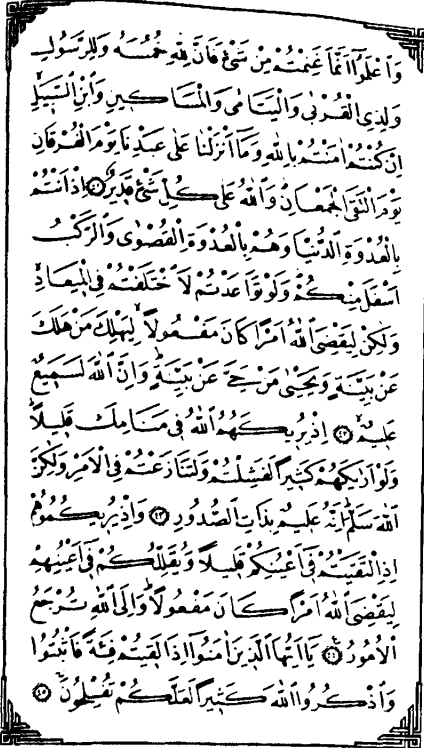 وَاعْلَمُوا اَنَّمَا غَنِمْتُمْ مِنْ شَيْءٍ فَاَنَّ لِلّٰهِ خُمُسَهُ وَلِلرَّسُولِ
وَلِذِي الْقُرْبٰى وَالْيَتَامٰى وَالْمَسَاكِينِ وَابْنِ السَّبِيلِ
اِنْ كُنْتُمْ اٰمَنْتُمْ بِاللّٰهِ وَمَا اَنْزَلْنَا عَلٰى عَبْدِنَا يَوْمَ الْفُرْقَانِ
يَوْمَ الْتَقَى الْجَمْعَانِ وَاللّٰهُ عَلٰى كُلِّ شَيْءٍ قَدِيرٌ ٤١ اِذْ اَنْتُمْ
بِالْعُدْوَةِ الدُّنْيَا وَهُمْ بِالْعُدْوَةِ الْقُصْوٰى وَالرَّكْبُ
اَسْفَلَ مِنْكُمْ وَلَوْ تَوَاعَدْتُمْ لَاخْتَلَفْتُمْ فِي الْمِيعَادِ
وَلٰكِنْ لِيَقْضِيَ اللّٰهُ اَمْرًا كَانَ مَفْعُولًا لِيَهْلِكَ مَنْ هَلَكَ
عَنْ بَيِّنَةٍ وَيَحْيٰى مَنْ حَيَّ عَنْ بَيِّنَةٍ وَاِنَّ اللّٰهَ لَسَمِيعٌ
عَلِيمٌ ٤٢ اِذْ يُرِيكَهُمُ اللّٰهُ فِي مَنَامِكَ قَلِيلًا
وَلَوْ اَرٰيكَهُمْ كَثِيرًا لَفَشِلْتُمْ وَلَتَنَازَعْتُمْ فِي الْاَمْرِ وَلٰكِنَّ
اللّٰهَ سَلَّمَ اِنَّهُ عَلِيمٌ بِذَاتِ الصُّدُورِ ٤٣ وَاِذْ يُرِيكُمُوهُمْ
اِذِ الْتَقَيْتُمْ فِي اَعْيُنِكُمْ قَلِيلًا وَيُقَلِّلُكُمْ فِي اَعْيُنِهِمْ
لِيَقْضِيَ اللّٰهُ اَمْرًا كَانَ مَفْعُولًا وَاِلَى اللّٰهِ تُرْجَعُ
الْاُمُورُ ٤٤ يَا اَيُّهَا الَّذِينَ اٰمَنُوا اِذَا لَقِيتُمْ فِئَةً فَاثْبُتُوا
وَاذْكُرُوا اللّٰهَ كَثِيرًا لَعَلَّكُمْ تُفْلِحُونَ ٤٥